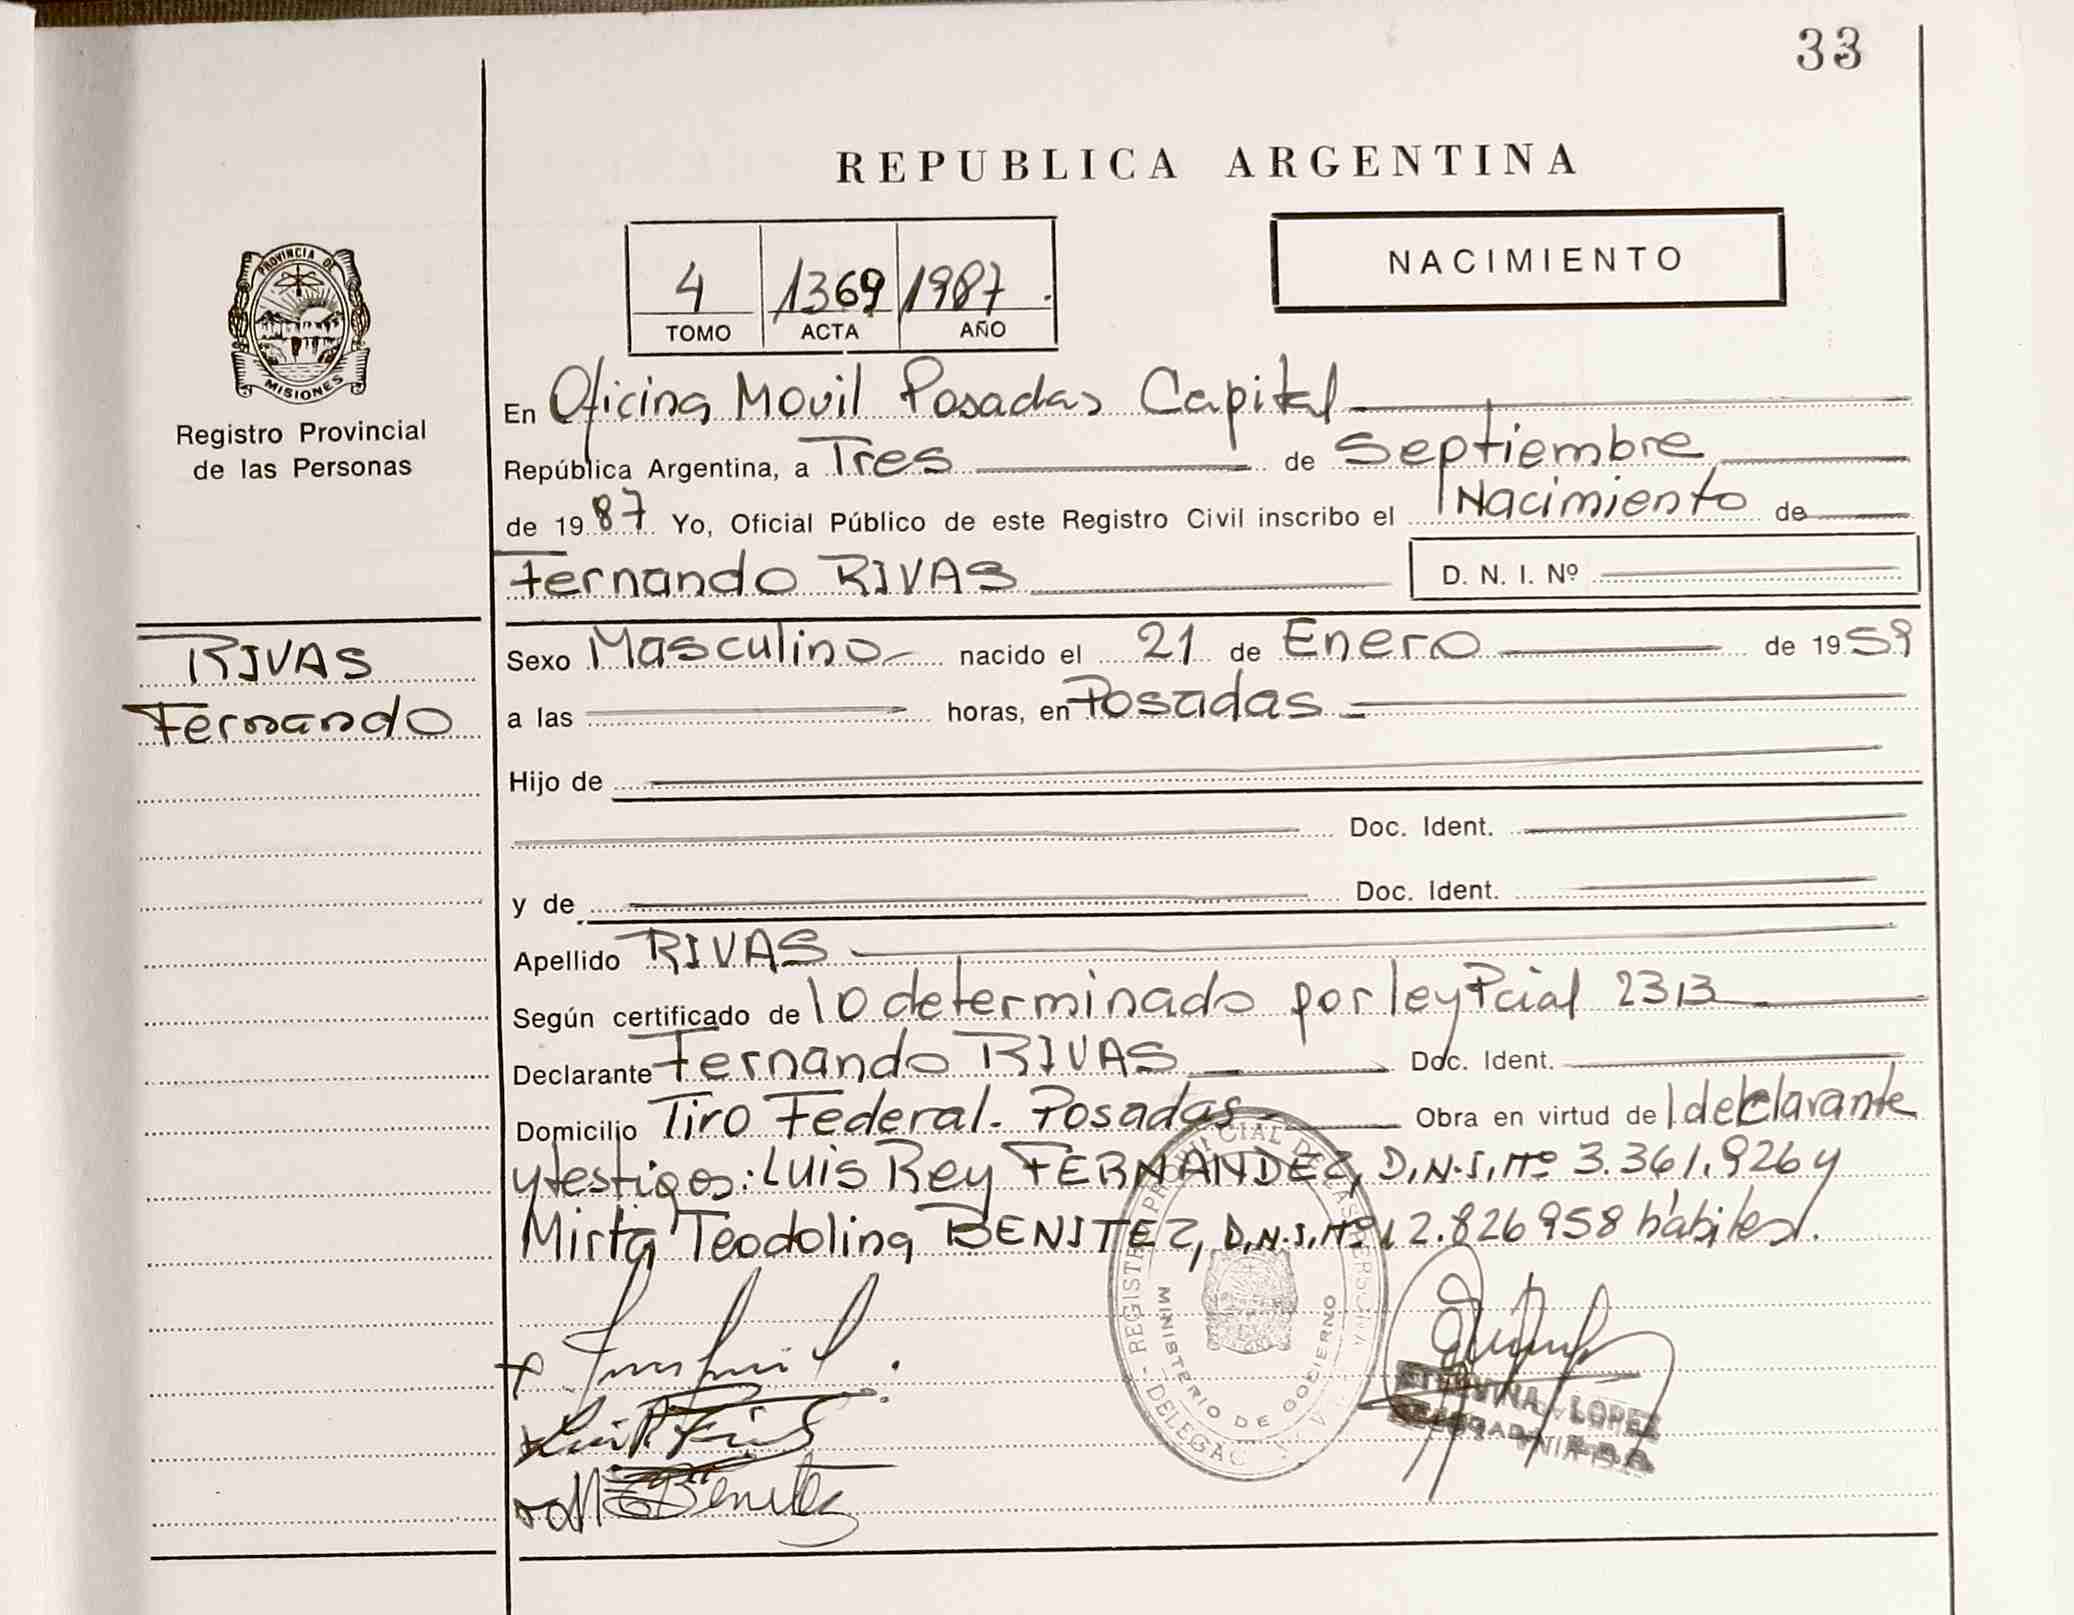 33
REPUBLICA ARGENTINA
PROVINCIA DE
MISIONES
Registro Provincial
de las Personas
4 1369 1987
TOMO ACTA AÑO
NACIMIENTO
En Oficina Movil Posadas Capital
República Argentina, a Tres de Septiembre
de 1987 Yo, Oficial Público de este Registro Civil inscribo el Nacimiento de
Fernando RIVAS D. N. I. Nº
RIVAS
Fernando
Sexo Masculino nacido el 21 de Enero de 1959
a las horas, en Posadas
Hijo de
Doc. Ident.
y de Doc. Ident.
Apellido RIVAS
Según certificado de lo determinado por ley Pcial 2313
Declarante Fernando RIVAS Doc. Ident.
Domicilio Tiro Federal. Posadas Obra en virtud de l declarante
y testigos: Luis Rey FERNANDEZ, D.N.I. Nº 3.361.926 y
Mirta Teodolina BENITEZ, D.N.I. Nº 12.826958 hábiles.
REGISTRO PROVINCIAL DE LAS PERSONAS
MINISTERIO DE GOBIERNO
Benitez
LOPEZ